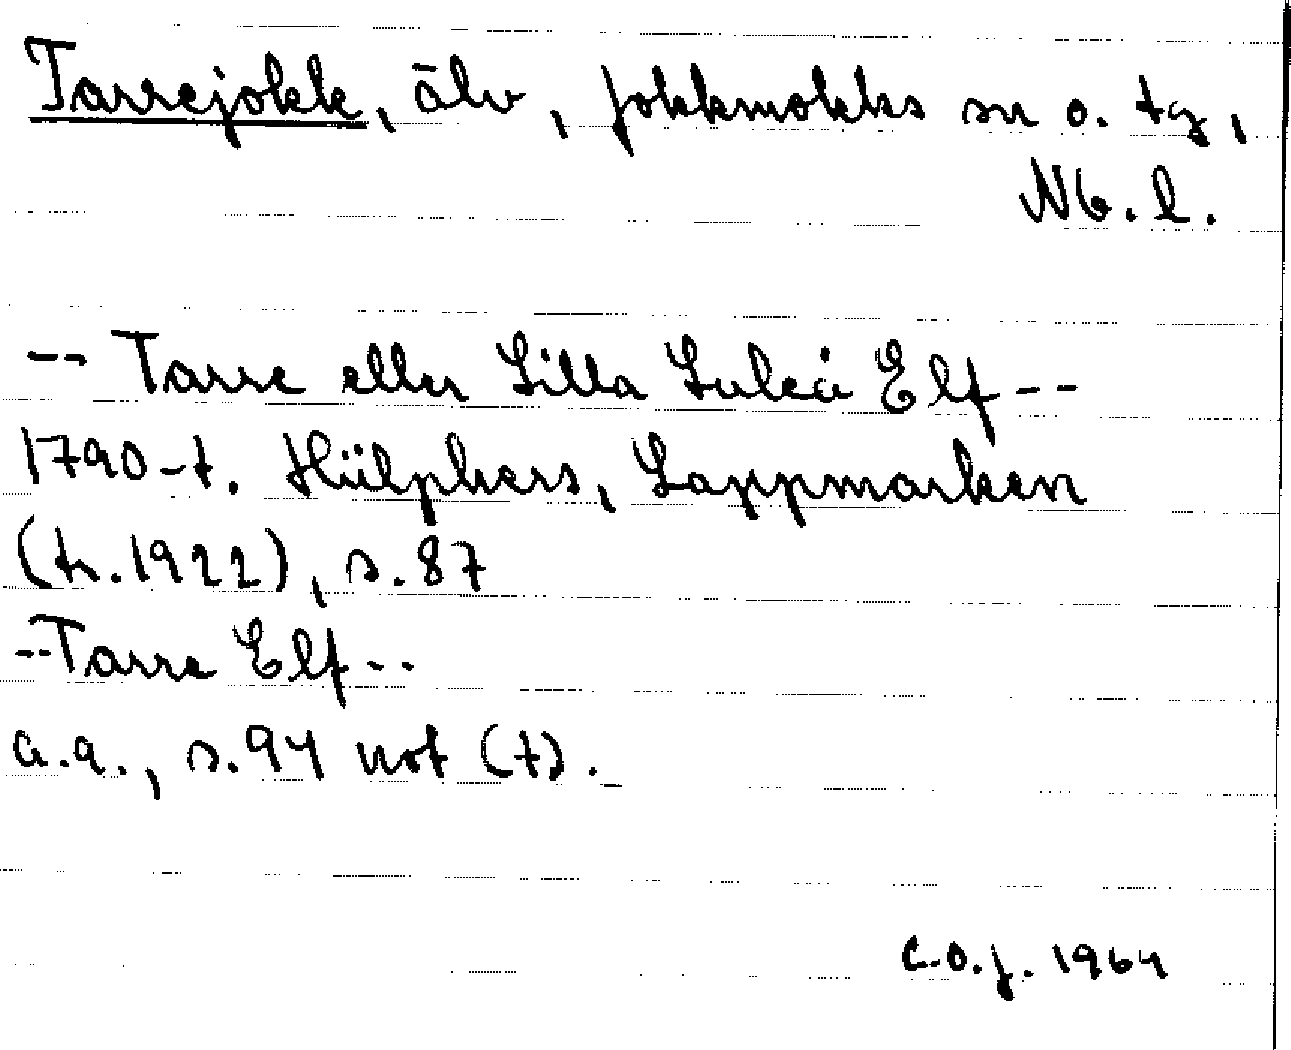 Tarrejokk, älv, Jokkmokks sn o. tg,
Nb. l.
-- Tarre eller Lilla Luleå Elf --
1790-t. Hülphers, Lappmarken
(tr. 1922), s. 87
-- Tarre Elf --
a.a., s. 94 not (t).
C.O.J. 1964